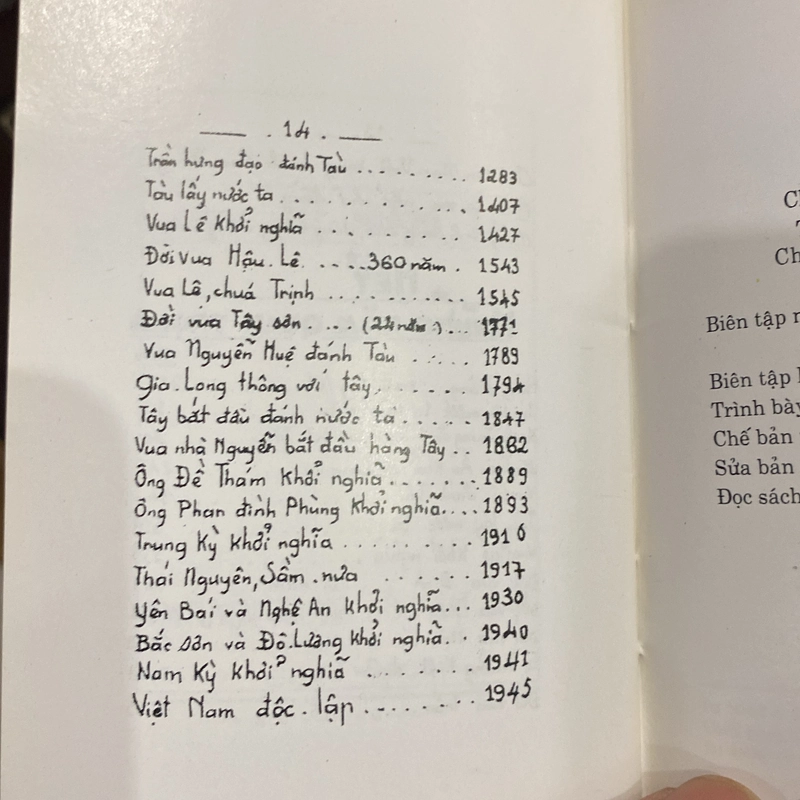 . 14 .
Trần hưng đạo đánh Tàu ......... 1283
Tàu lấy nước ta . . . . . . . . . . . . 1407
Vua Lê khởi nghĩa . . . . . . . . . 1427
Đời vua Hậu. Lê. ....360 năm . 1543
Vua Lê, chuá Trịnh ........... 1545
Đời vua Tây sơn .... (24 năm) ... 1771
Vua Nguyễn Huệ đánh Tàu ...... 1789
Gia. Long thông với tây. ...... 1794
Tây bắt đầu đánh nước ta ..... 1847
Vua nhà Nguyễn bắt đầu hàng Tây .. 1862
Ông Đề Thám khởi nghĩa ........ 1889
Ông Phan đình Phùng khởi nghĩa.... 1893
Trung Kỳ khởi nghĩa ......... 1916
Thái Nguyên, Sầm. nưa ...... 1917
Yên Bái và Nghệ An khởi nghĩa... 1930
Bắc sơn và Đô. Lương khởi nghĩa. . 1940
Nam Kỳ khởi nghĩa ........ 1941
Việt Nam độc. lập ......... 1945
Ch
Biên tập
Biên tập
Trình bày
Chế bản
Sửa bản
Đọc sách